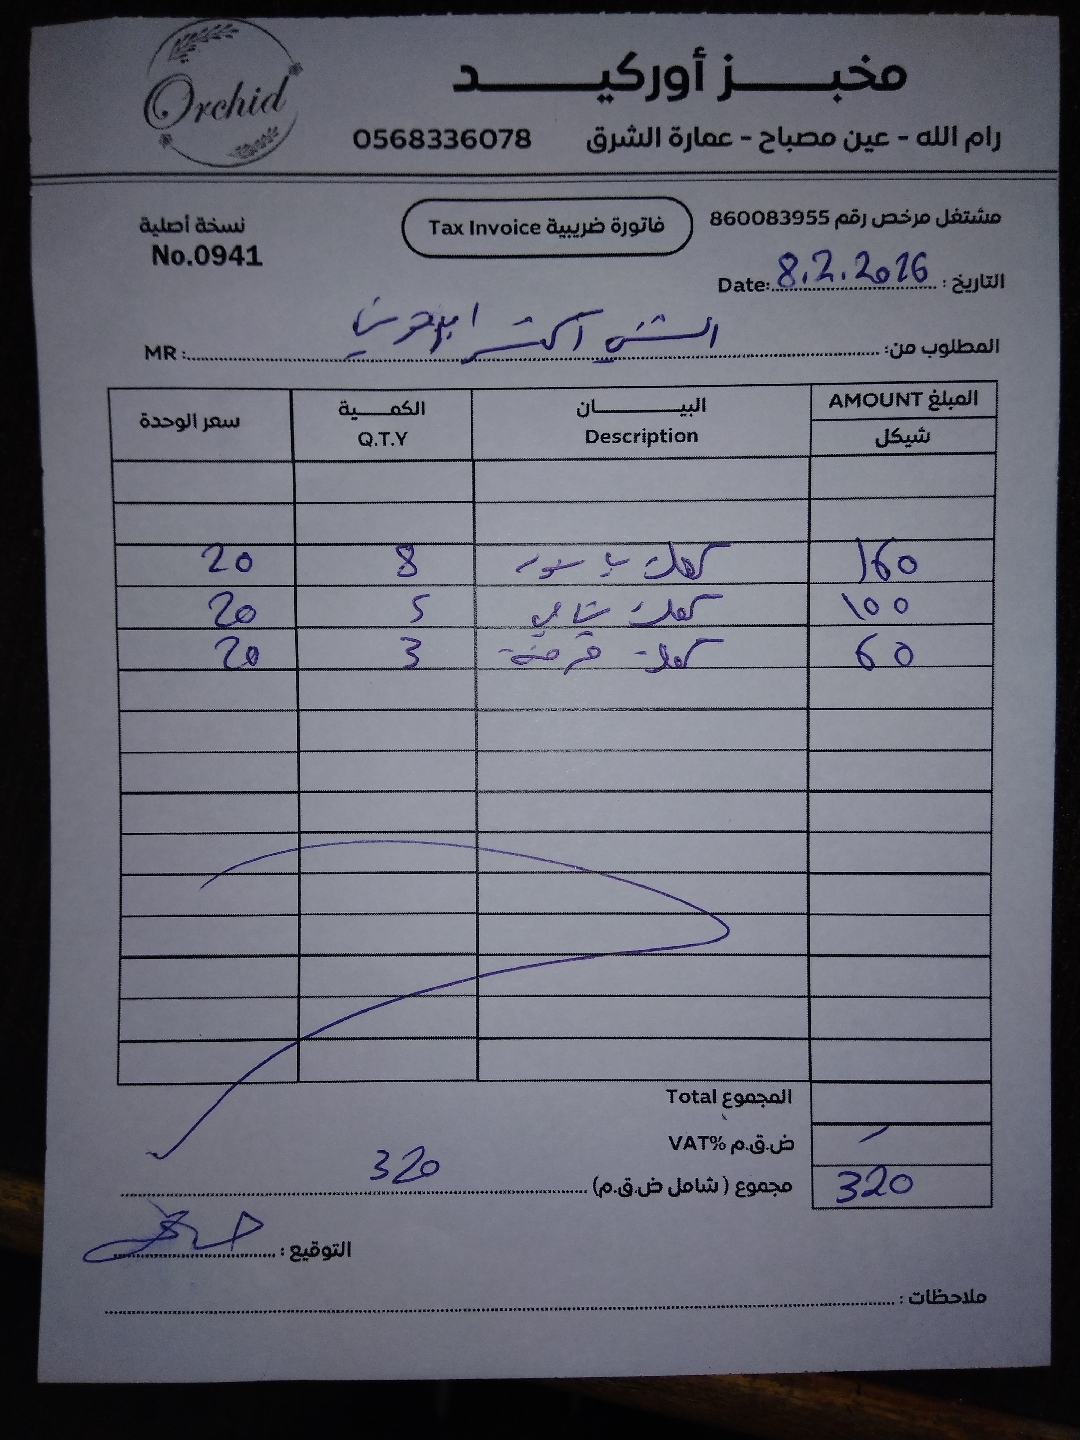 Orchid
مخبـــــز أوركيـــــــد
رام الله - عين مصباح - عمارة الشرق 0568336078
مشتغل مرخص رقم 860083955
فاتورة ضريبية Tax Invoice
نسخة أصلية
No.0941
التاريخ : 8.2.2026 Date:
المطلوب من: MR :
المبلغ AMOUNT البيـــــــان الكمـــية سعر الوحدة
شيكل Description Q.T.Y
160 كعك 8 20
100 كعك 5 20
60 كعك قرفة 3 20
المجموع Total
ض.ق.م %VAT
320 مجموع ( شامل ض.ق.م) 320
التوقيع :
ملاحظات :